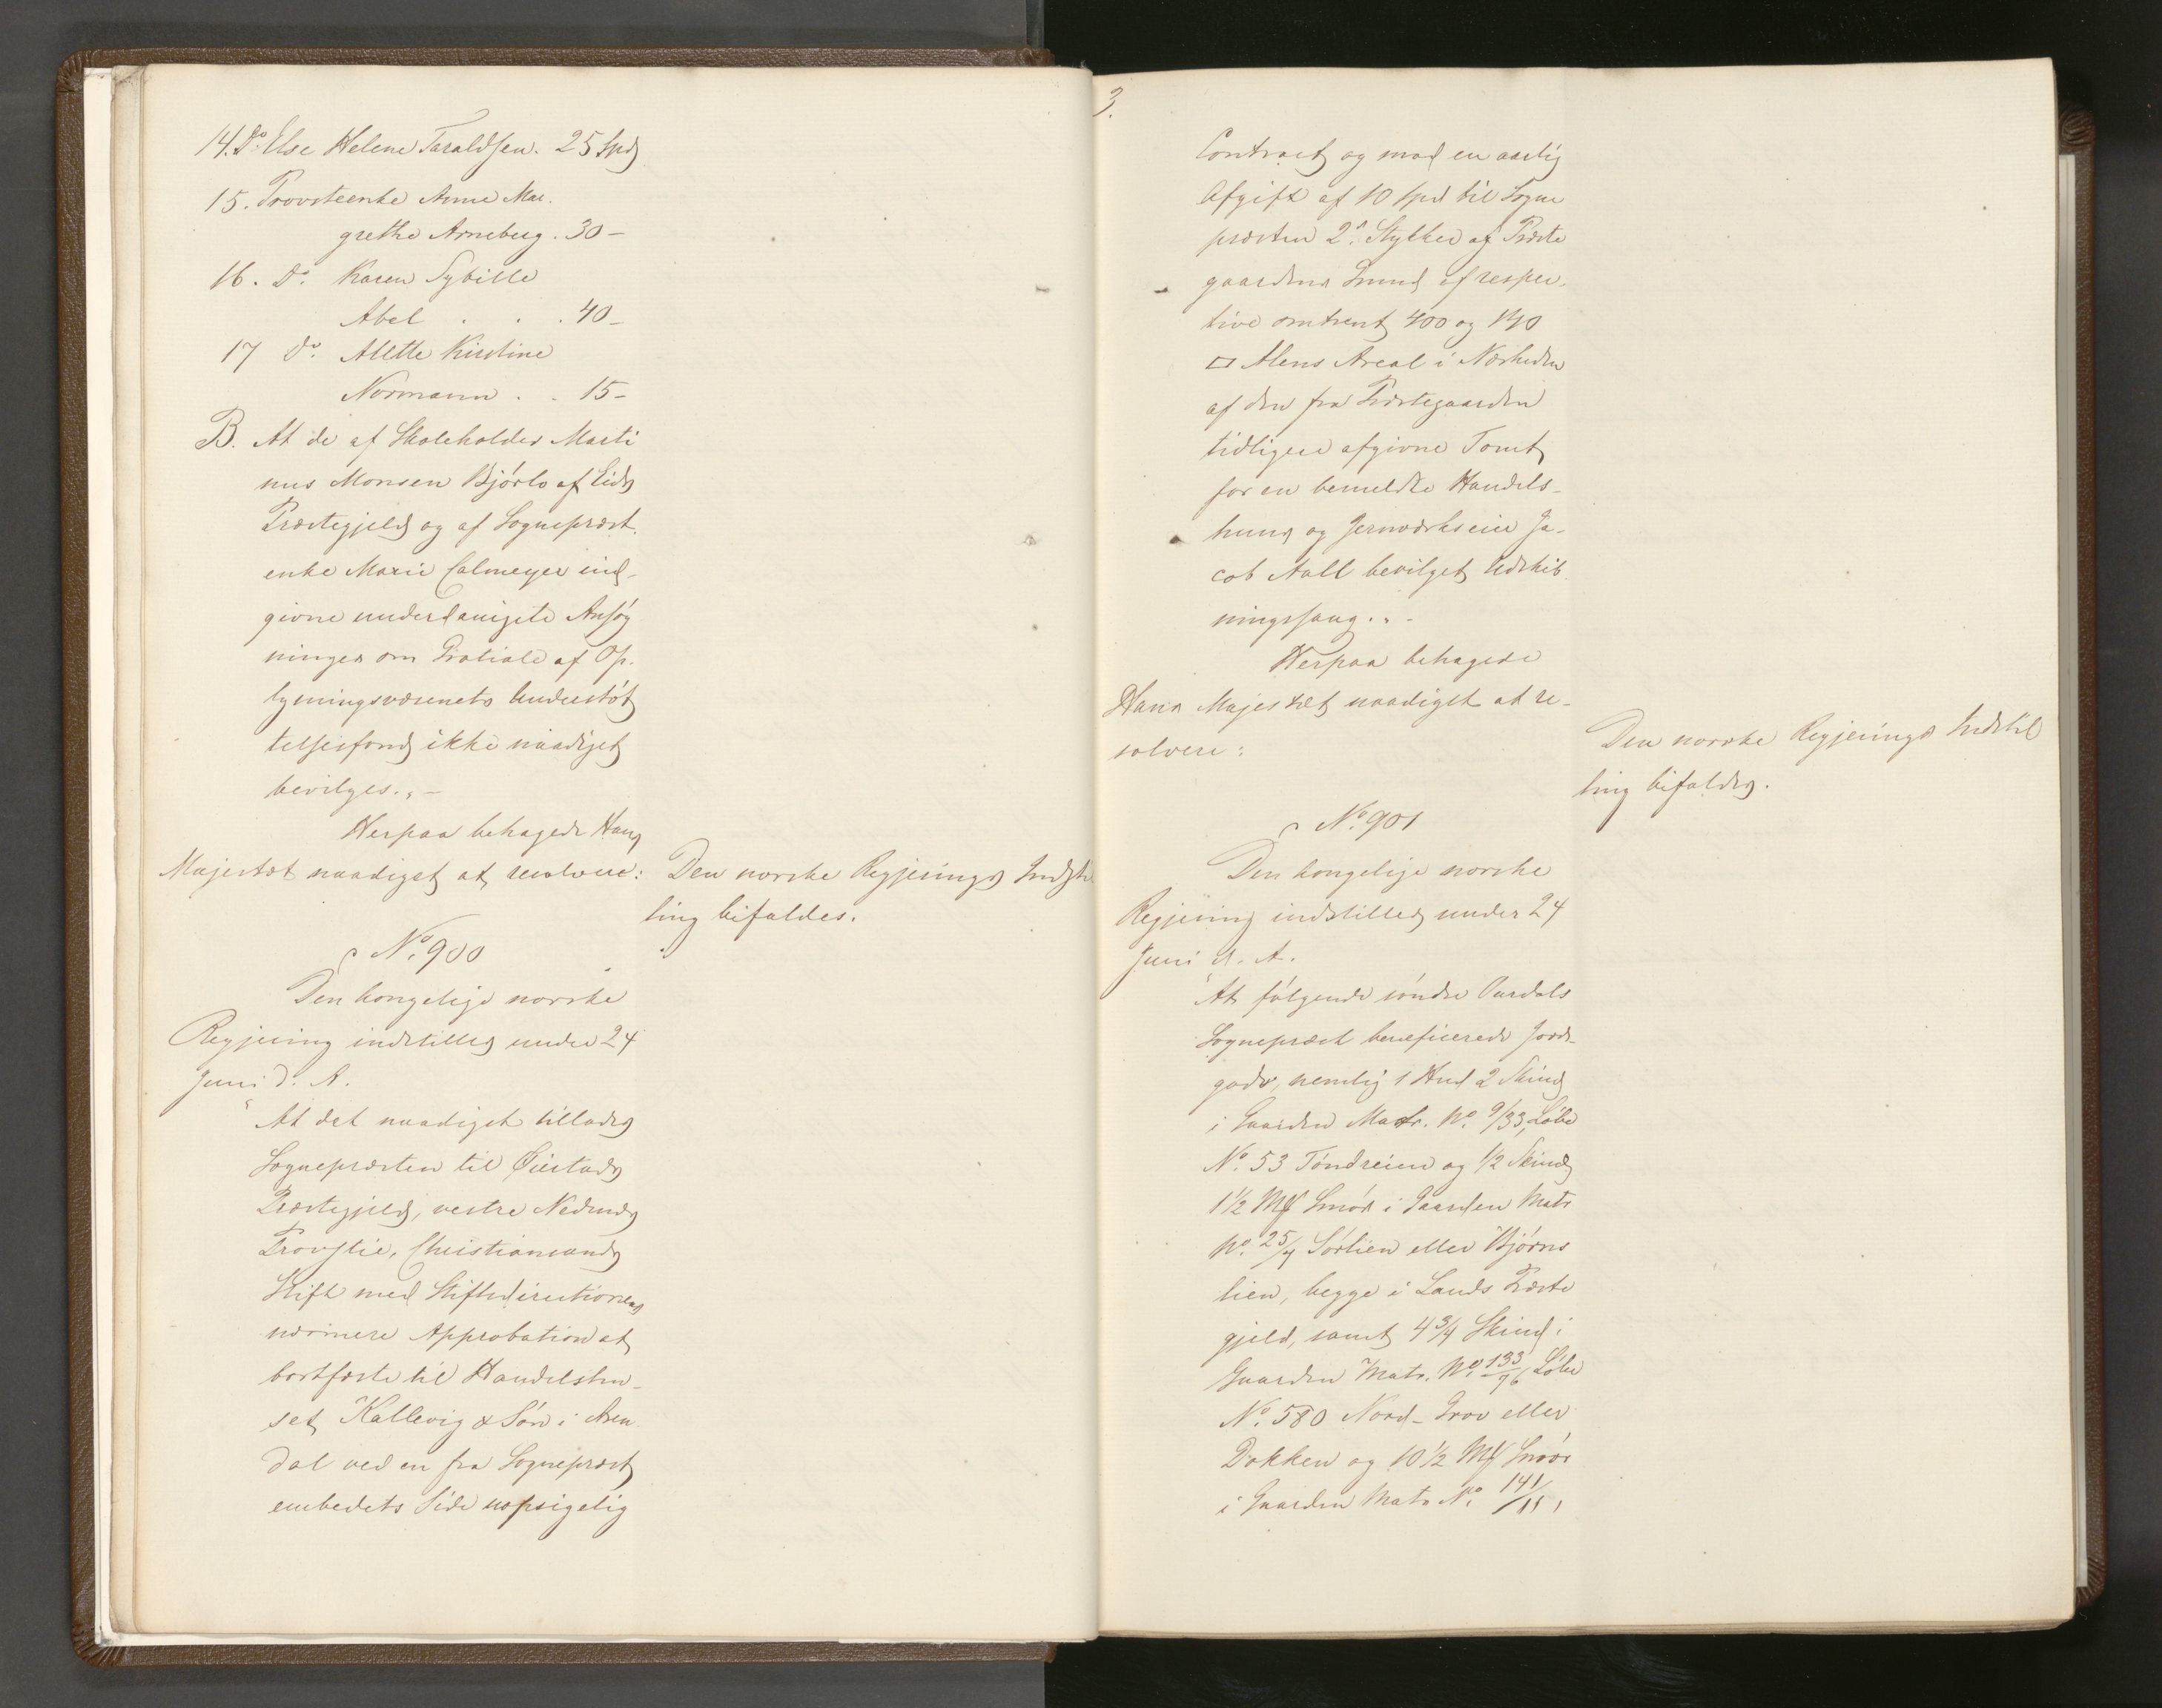 14. Do Else Helene Taraldsen. 25 Spd
15. Provsteenke Anne Mar.
grethe Arneberg. 30 –
16. Do. Karen Sybille
Abel . . . 40 –
17 Do. Alette Kirstine
Normann . . 15 –
B. At de af Skoleholder Marti
nus Monsen Bjørlo af Eids
Præstegjeld og af Sognepræst.
enke Marie Calmeyer ind-
givne underdanigste Ansøg
ninger om Gratiale af Op.
lysningsvæsenets Understøt
telsesfond ikke naadigst
bevilges. „ –
Herpaa behagede Hans
Majestæt naadigst at resolvere:
Den norske Regjerings Indstil
ling bifaldes.
No. 900
Den kongelige norske
Regjering indstilles under 24
Juni d. A.
"At det naadigst tillades
Sognepræsten til Øiestads
Præstegjeld, vestre Nedenæs
Provstie, Christiansands
Stift med Stiftsdirectionens
nærmere Approbation at
bortfæste til Handelshu-
set Kallevig & Søn i Aren
dal ved en fra Sognepræst
embedets Side uopsigelig
3.
Contract og mod en aarlig
Afgift af 10 Spd til Sogne
præsten 2de Stykker af Præste
gaardens Grund af respec.
tive omtrent 400 og 140
□ Alens Areal i Nærheden
af den fra Præstegaarden
tidligere afgivne Tomt
for en bemeldte Handels-
huus og Jernværkseier Ja-
cob Aall bevilget Udskib
ningssaug. „ -
Herpaa behagede
Hans Majestæt naadigst at re-
solvere:
Den norske Regjerings Indstil
ling bifaldes.
No. 901
Den kongelige norske
Regjering indstilles under 24
Juni d. A.
"At følgende søndre Aurdals
Sognepræst beneficerede Jords-
gods, nemlig 1 Hud 2 Skind
i Gaarden Matr. No. 9/33, Løbe
No. 53 Tøndreien og 1/2 Skind
1 1/2 Mk Smør i Gaarden Matr
No. 25/4 Sørlien eller Bjørns
lien, begge i Lands Præste
gjeld, samt 4 3/4 Skind i
Gaarden Matr. No. 133/96 Løbe
No. 580 Nord-Grov eller
Dokken og 10 1/2 Mk Smør
i Gaarden Matr No. 141/11,